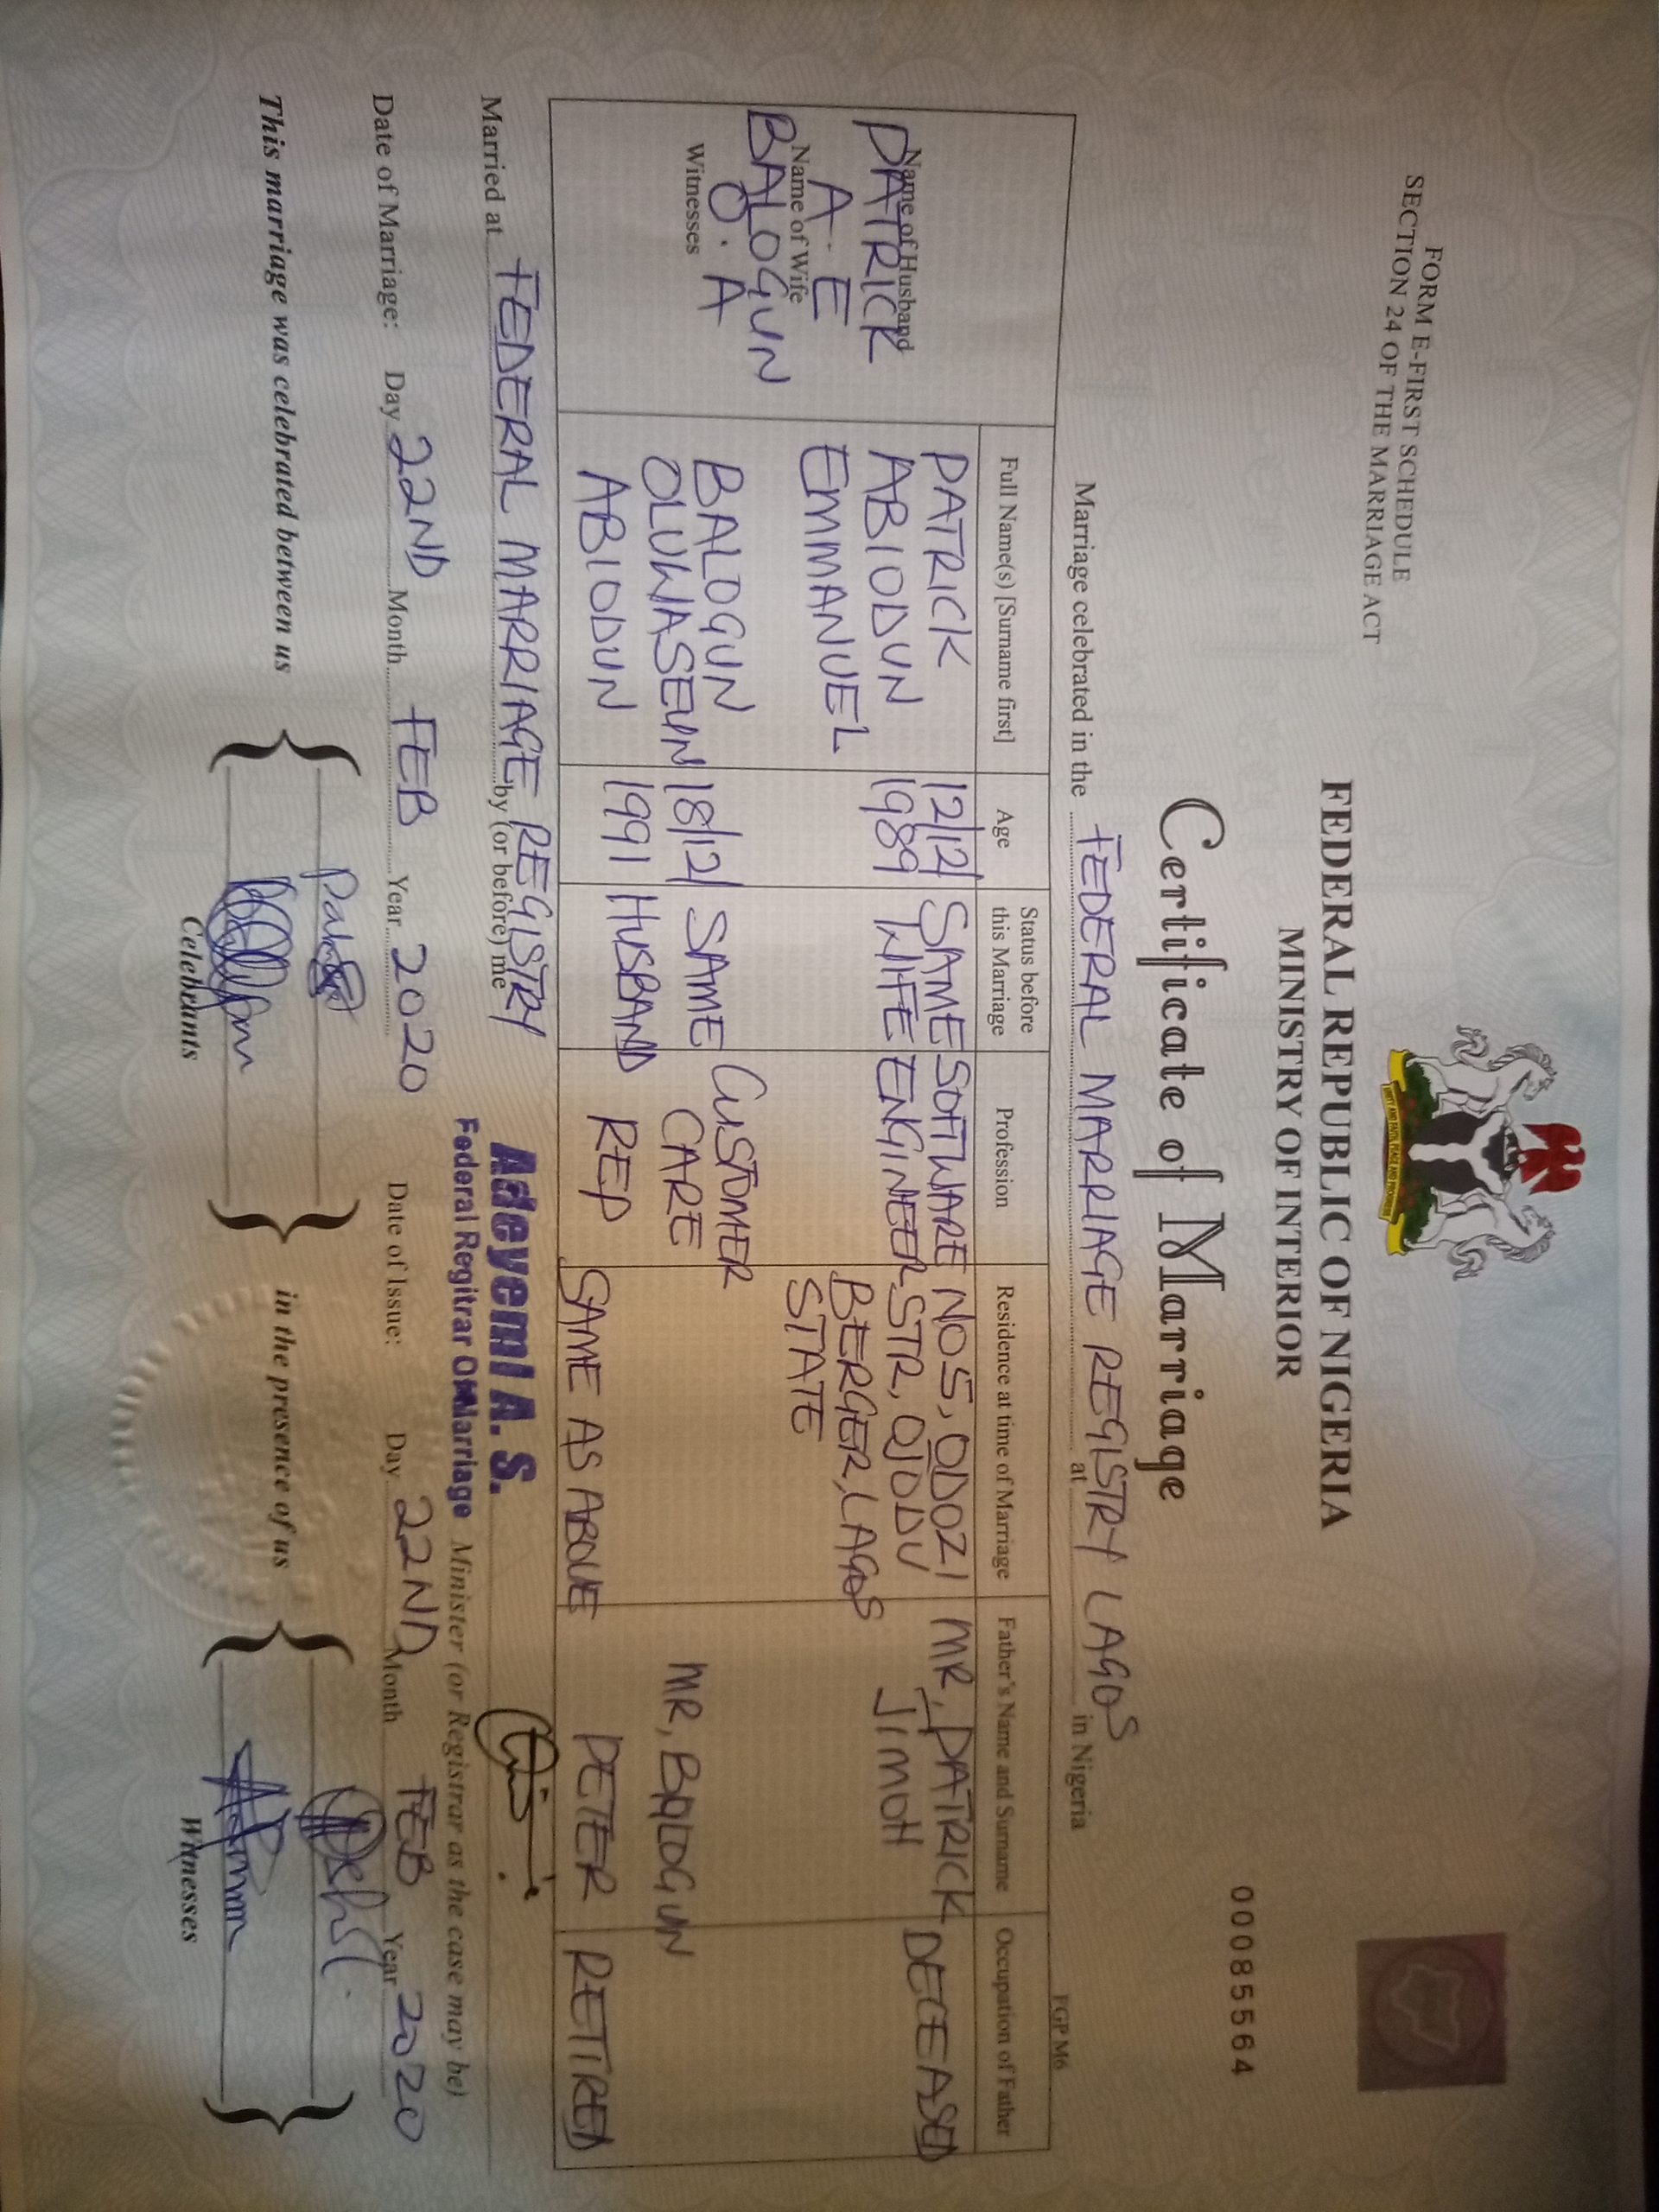 FORM E-FIRST SCHEDULE
SECTION 24 OF THE MARRIAGE ACT
FEDERAL REPUBLIC OF NIGERIA
MINISTRY OF INTERIOR
Certificate of Marriage
0085564
Marriage celebrated in the FEDERAL MARRIAGE REGISTRY LAGOS at in Nigeria
FGP M6
Full Name(s) [Surname first] Age Status before this Marriage Profession Residence at time of Marriage Father's Name and Surname Occupation of Father
Name of Husband
PATRICK
A. E
PATRICK
ABIODUN
EMMANUEL
12/12/
1989
SAME
WIFE
SOFTWARE
ENGINEER
NO5, ODOZI
STR, OJODU
BERGER, LAGOS
STATE
MR, PATRICK
JIMOH
DECEASED
Name of Wife
BALOGUN
O. A
BALOGUN
OLUWASEUN
ABIODUN
18/12/
1991
SAME
HUSBAND
CUSTOMER
CARE
REP
SAME AS ABOVE
MR, BALOGUN
PETER
RETIRED
Witnesses
Married at FEDERAL MARRIAGE REGISTRY by (or before) me
Adeyemi A. S.
Federal Regitrar Of Marriage
Minister (or Registrar as the case may be)
Date of Marriage: Day 22ND Month FEB Year 2020 Date of Issue: Day 22ND Month FEB Year 2020
This marriage was celebrated between us
Celebrants
in the presence of us
Witnesses